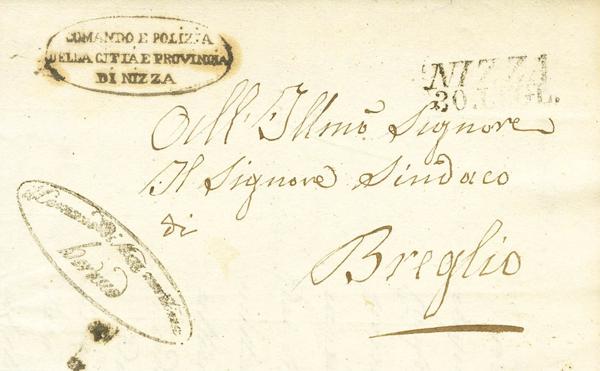 COMANDO E POLIZIA
DELLA CITTÀ E PROVINCIA
DI NIZZA
NIZZA
20. LUGL.
All'Illmo Signore
Il Signore Sindaco
di
Breglio